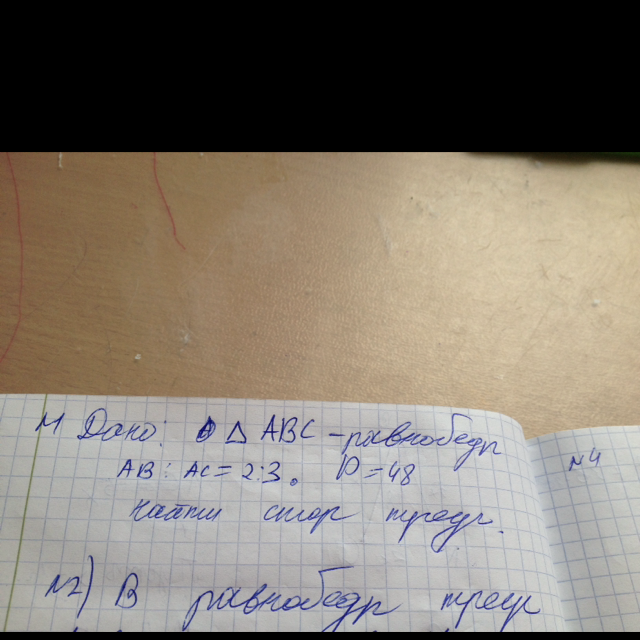 №1 Дано: Δ ABC - равнобедр
AB : AC = 2:3. P = 48
найти стор треуг.
№2) В равнобедр треуг
№4